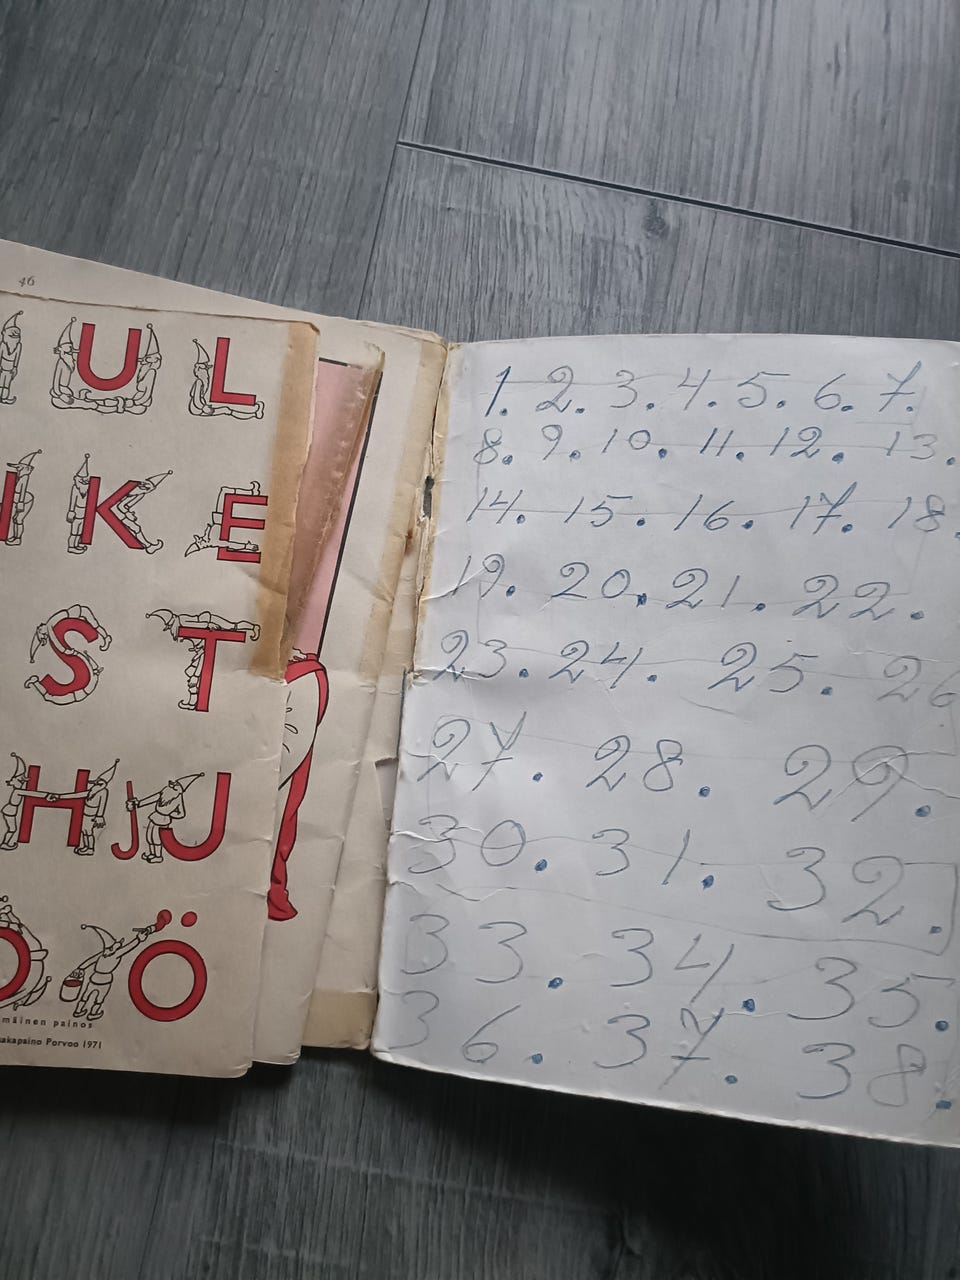 46
U L
I K E
S T
H J U
O Ö
mäinen painos
akapaino Porvoo 1971
1. 2. 3. 4. 5. 6. 7.
8. 9. 10. 11. 12. 13.
14. 15. 16. 17. 18.
19. 20. 21. 22.
23. 24. 25. 26
27. 28. 29.
30. 31. 32.
33. 34. 35.
36. 37. 38.